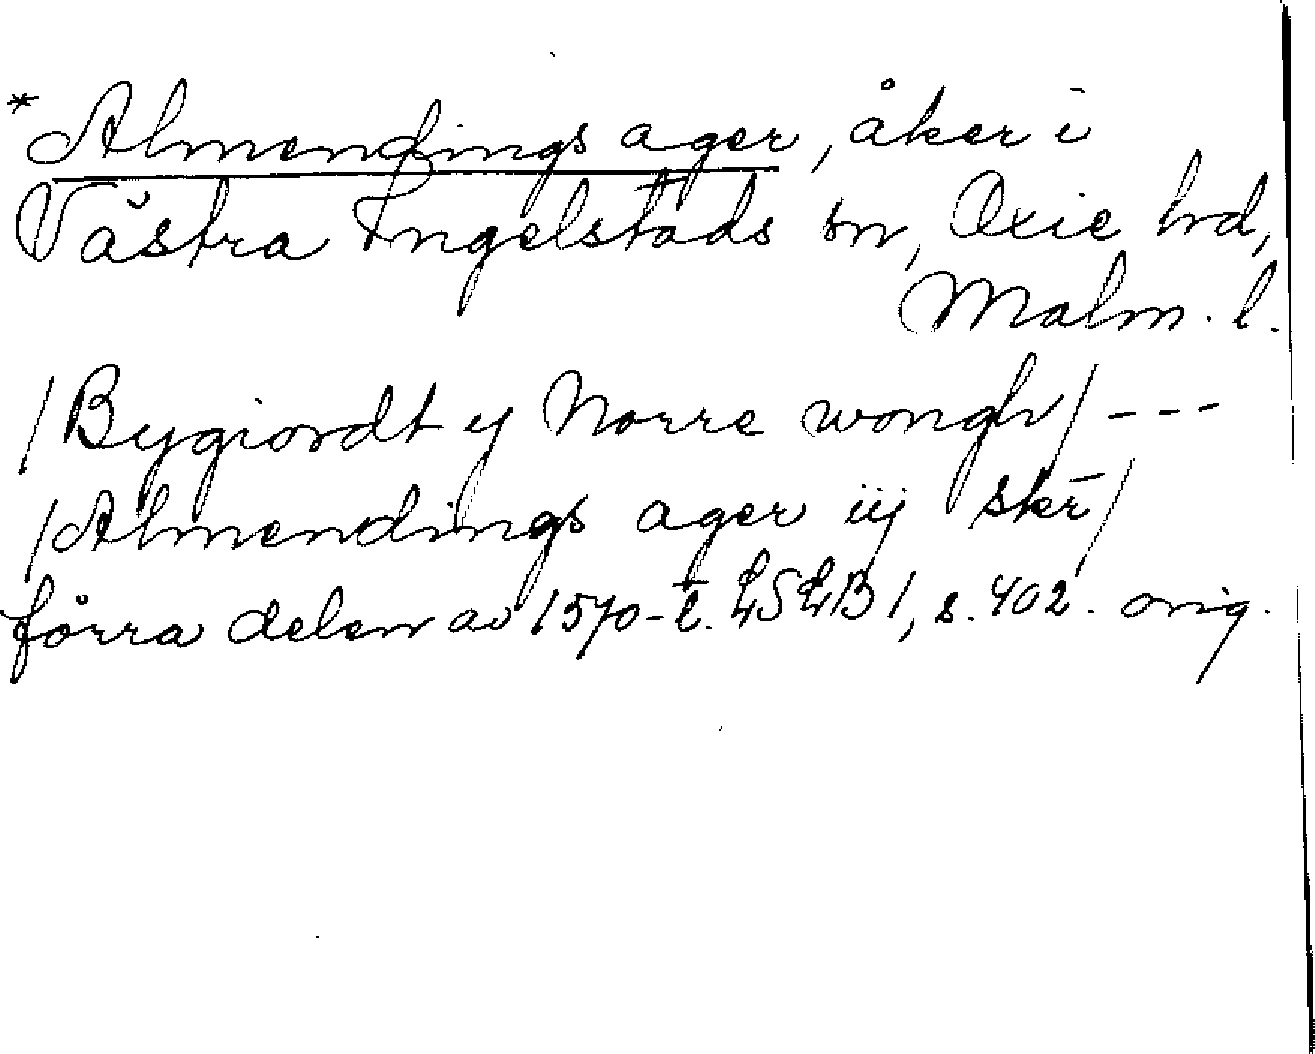 *Almendings ager, åker i
Västra Ingelstads sn, Oxie hd,
Malm. l.
/Bygiordt y Norre wongh/ ---
/Almendings ager iij skr̄/
förra delen av 1570-t. LSLB 1, s. 402. orig.